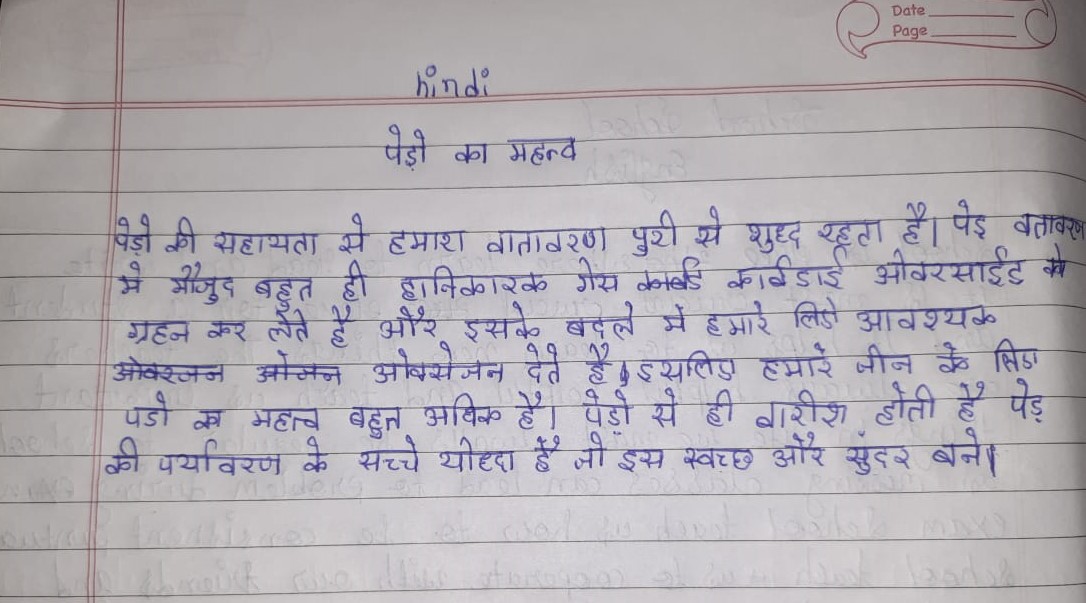 Date
Page
hindi
पेड़ो का महत्व
पेड़ो की सहायता से हमारा वातावरण पुरी से शुध्द रहता है। पेड़ वतावरण
मे मौजुद बहुत ही हानिकारक गेस कार्बडाई ओवरसाईड को
ग्रहन कर लेते है और इसके बदले में हमारे लिडो आवश्यक
ओक्सेजन देते है। इसलिए हमारे जीन के लिए
पडो का महत्व बहुत अधिक है। पेड़ो से ही बारीश होती है पेड़
की पर्यावरण के सच्चे योध्दा है जो इस स्वच्छ और सुंदर बने।